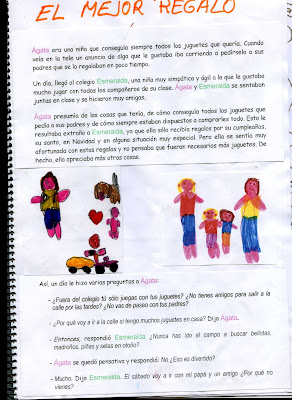 EL MEJOR REGALO
Ágata era una niña que conseguía siempre todos los juguetes que quería. Cuando
veía en la tele un anuncio de algo que le gustaba iba corriendo a pedírselo a sus
padres que se lo regalaban en poco tiempo.
Un día, llegó al colegio Esmeralda, una niña muy simpática y ágil a la que le gustaba
mucho jugar con todos los compañeros de su clase. Ágata y Esmeralda se sentaban
juntas en clase y se hicieron muy amigas.
Ágata presumía de las cosas que tenía, de cómo conseguía todos los juguetes que
pedía a sus padres y de cómo siempre estaban dispuestos a comprarles todo. Esto le
resultaba extraño a Esmeralda, ya que ella sólo recibía regalos por su cumpleaños,
su santo, en Navidad y en alguna situación muy especial. Pero ella se sentía muy
afortunada con estos regalos y no pensaba que fueran necesarios más juguetes. De
hecho, ella apreciaba más otras cosas.
Así, un día le hizo varias preguntas a Ágata:
- ¿Fuera del colegio tú sólo juegas con tus juguetes? ¿No tienes amigos para salir a la
calle por las tardes? ¿No vas de paseo con tus padres?
- ¿Por qué voy a ir a la calle si tengo muchos juguetes en casa? Dijo Ágata.
- Entonces, respondió Esmeralda ¿Nunca has ido al campo a buscar bellotas,
madroños, piñas y setas en otoño?
- Ágata se quedó pensativa y respondió: No ¿Eso es divertido?
- Mucho. Dijo Esmeralda. El sábado voy a ir con mi papá y un amigo ¿Por qué no
vienes?